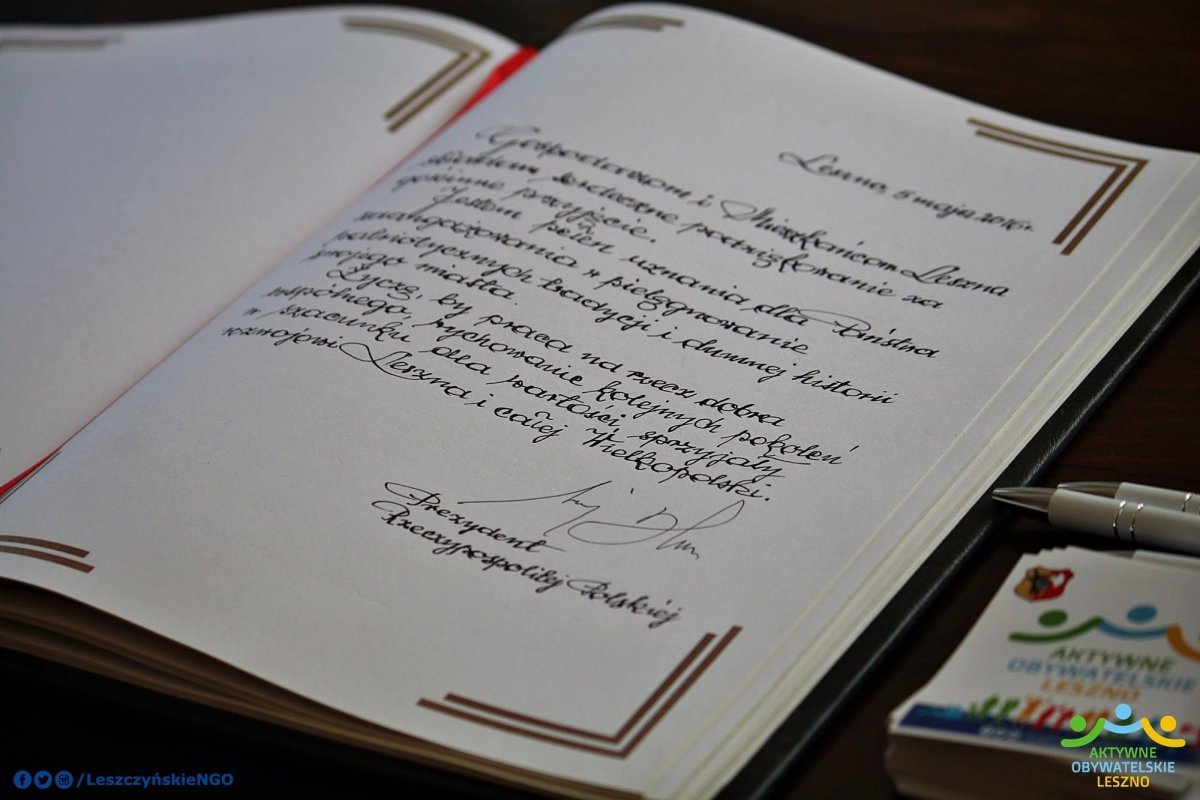 Leszno, 5 maja 2016 r.
Gospodarzom i Mieszkańcom Leszna
składam serdeczne podziękowanie za
gościnne przyjęcie.
Jestem pełen uznania dla Państwa
zaangażowania w pielęgnowanie
patriotycznych tradycji i dumnej historii
swojego miasta.
Życzę, by praca na rzecz dobra
wspólnego, wychowanie kolejnych pokoleń
w szacunku dla wartości, sprzyjały
rozwojowi Leszna i całej Wielkopolski.
Prezydent
Rzeczypospolitej Polskiej
AKTYWNE
OBYWATELSKIE
LESZNO
/LeszczyńskieNGO
AKTYWNE
OBYWATELSKIE
LESZNO